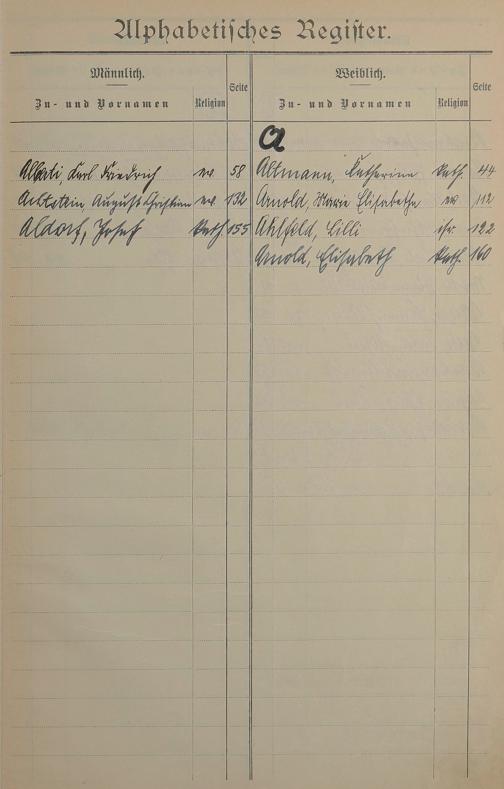 Alphabetisches Register.
Männlich.
Zu- und Vornamen Religion Seite
Karl Friedrich ev. 58
August Christian ev. 132
Aldorf, Josef kath. 155
Weiblich.
Zu- und Vornamen Religion Seite
A
Altmann, Katharina kath. 44
Arnold, Marie Elisabetha ev 112
Ahlfeld, Lilli isr. 122
Arnold, Elisabeth kath. 160